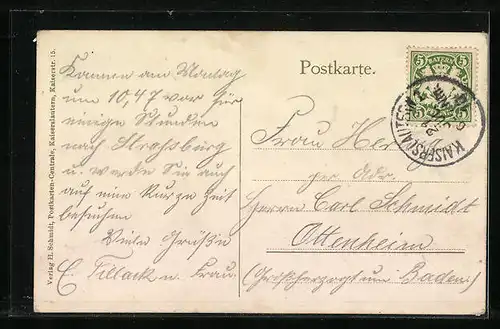 Postkarte.
Kommen am Montag
um 10,47 vor für
einige Stunden
nach Straßburg
u. werden Sie auch
auf eine kurze Zeit
besuchen
Viele Grüße
E. Tillack u. Frau.
Frau
per Adr.
Herrn Carl Schmidt
Ottenheim
(Großherzogtum Baden.)
BAYERN
5 5
5 5
KAISERSLAUTERN
Verlag H. Schmidt, Postkarten-Centrale, Kaiserslautern, Kaiserstr. 15.